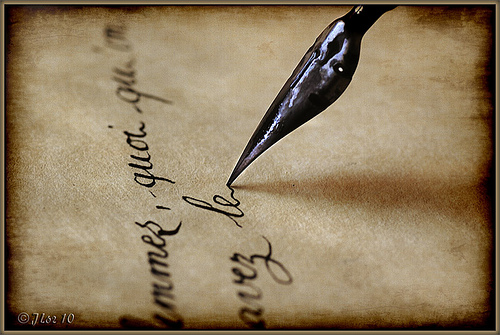 femmes, quoi qu'on
avez le
© Jlsz 10